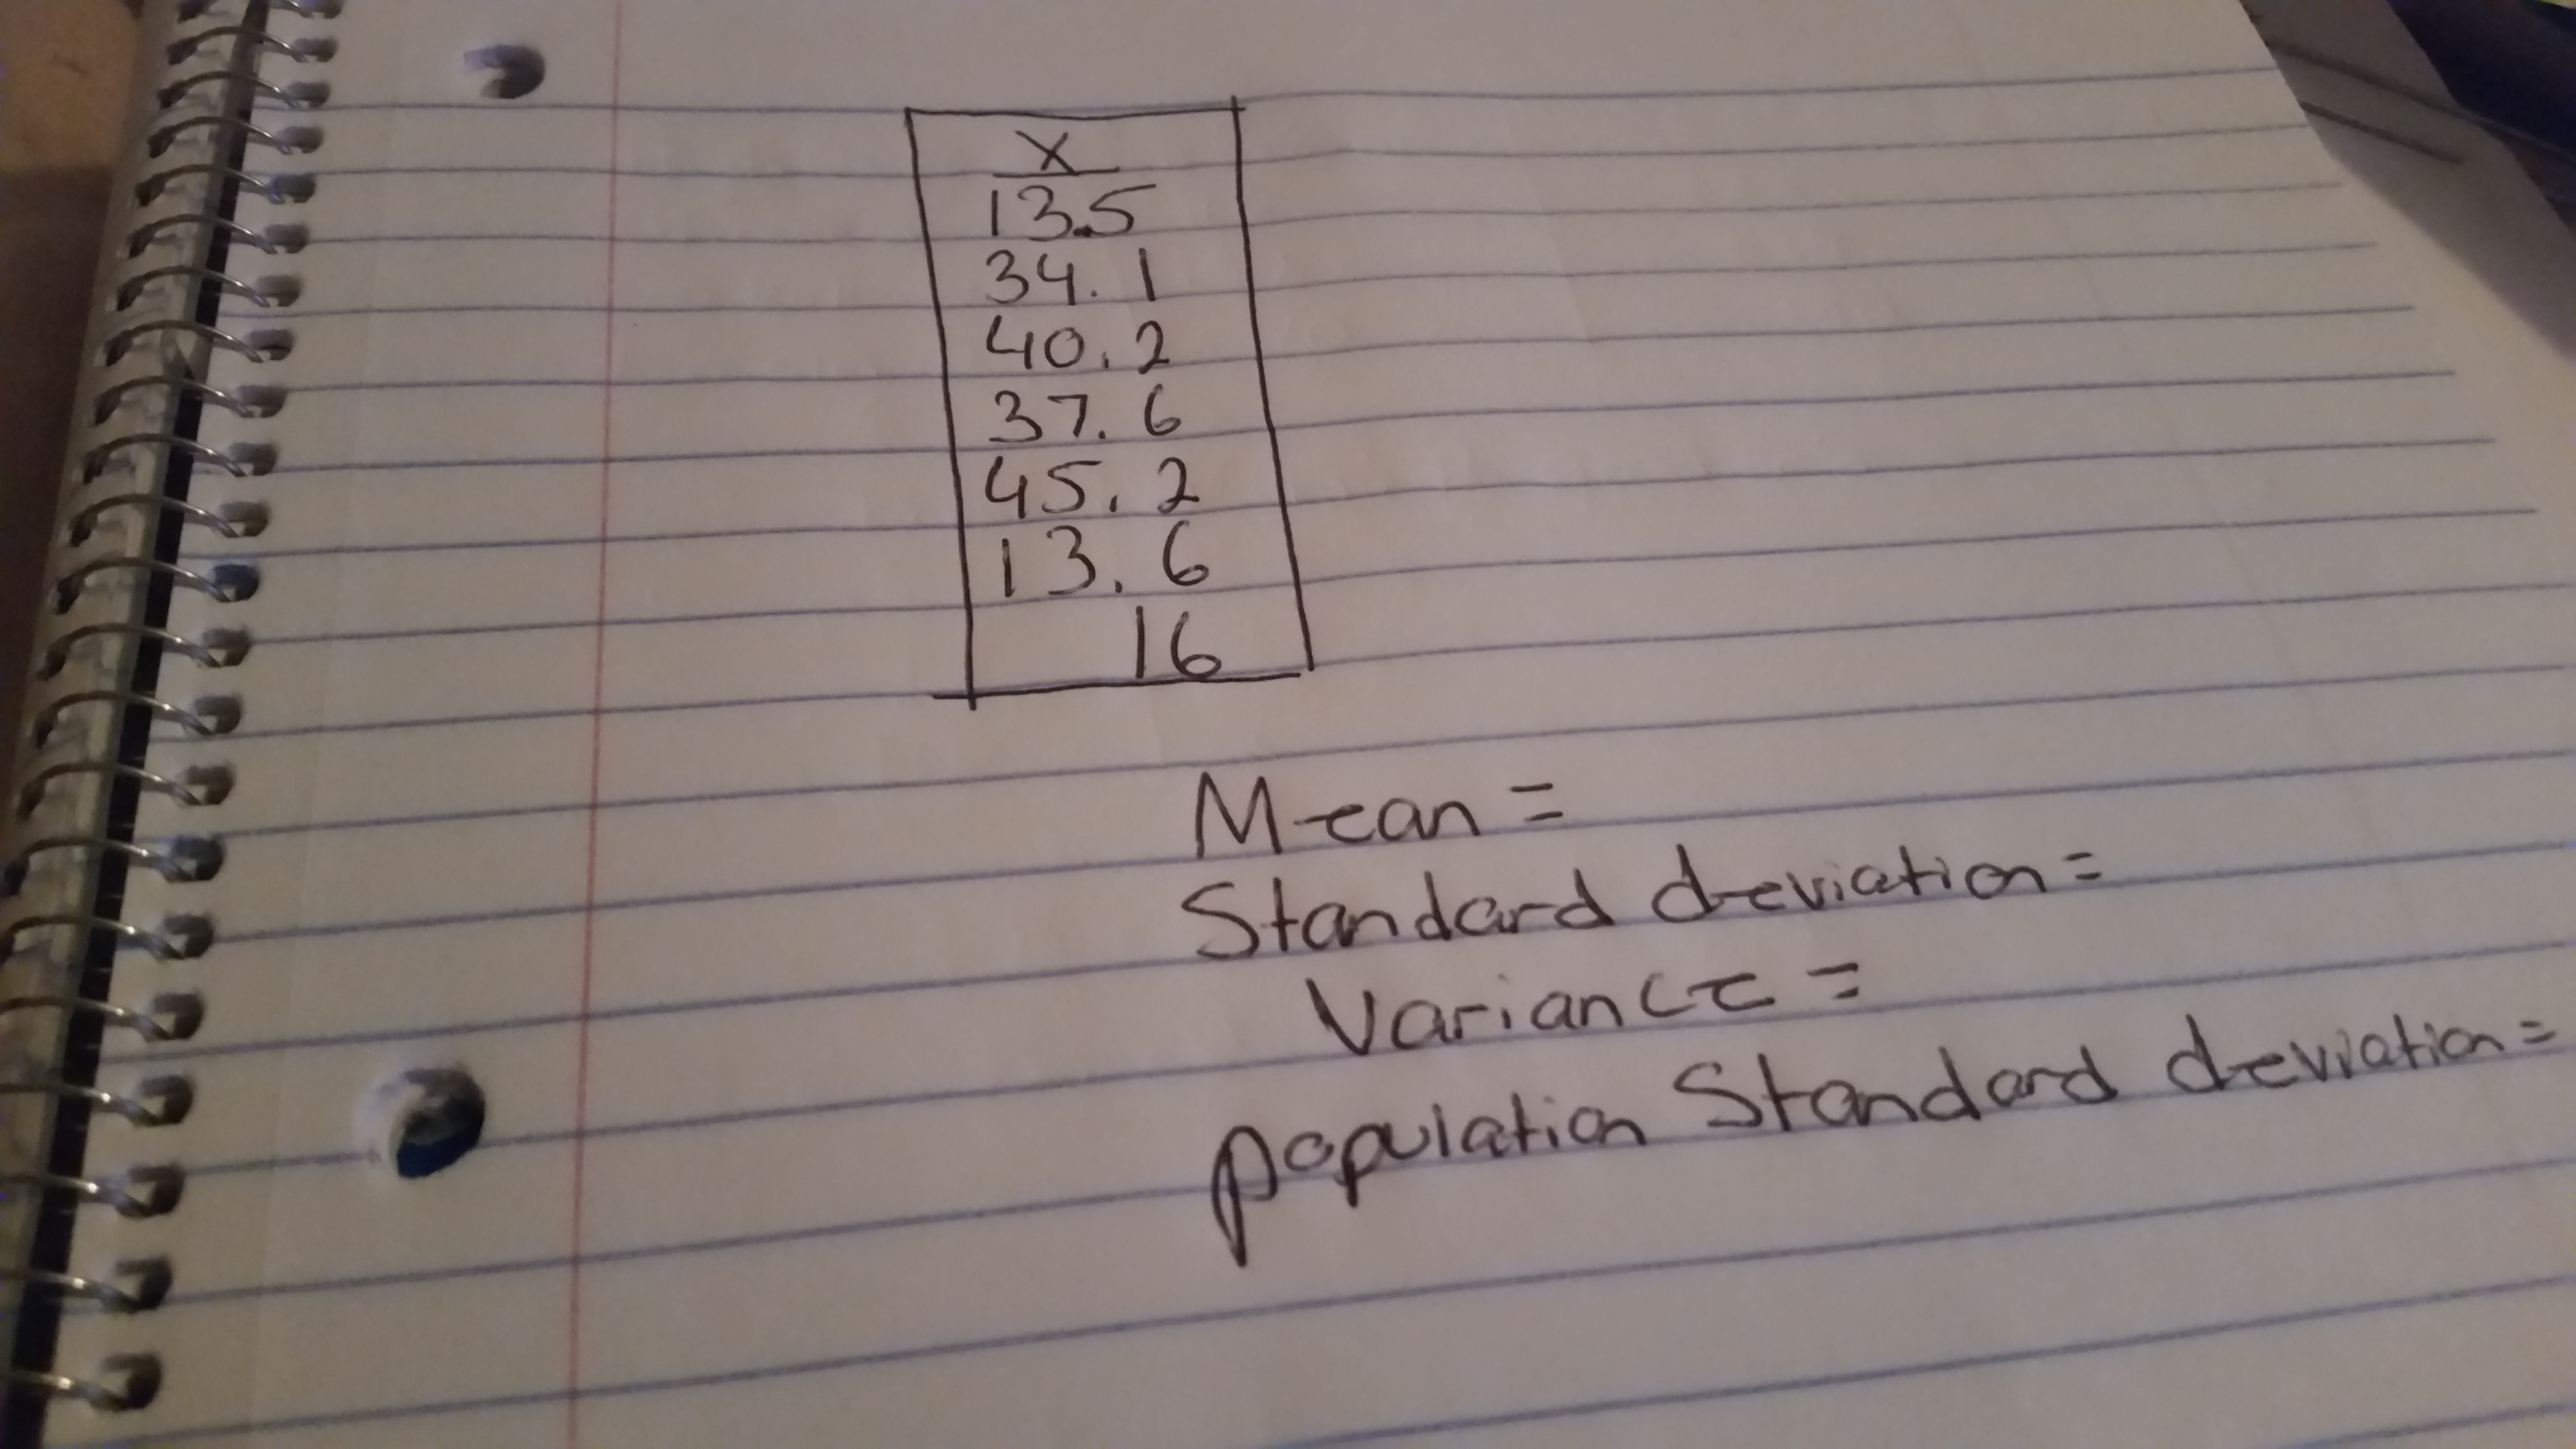 X
13.5
34.1
40.2
37.6
45.2
13.6
16
Mean =
Standard deviation =
Variance =
population Standard deviation =